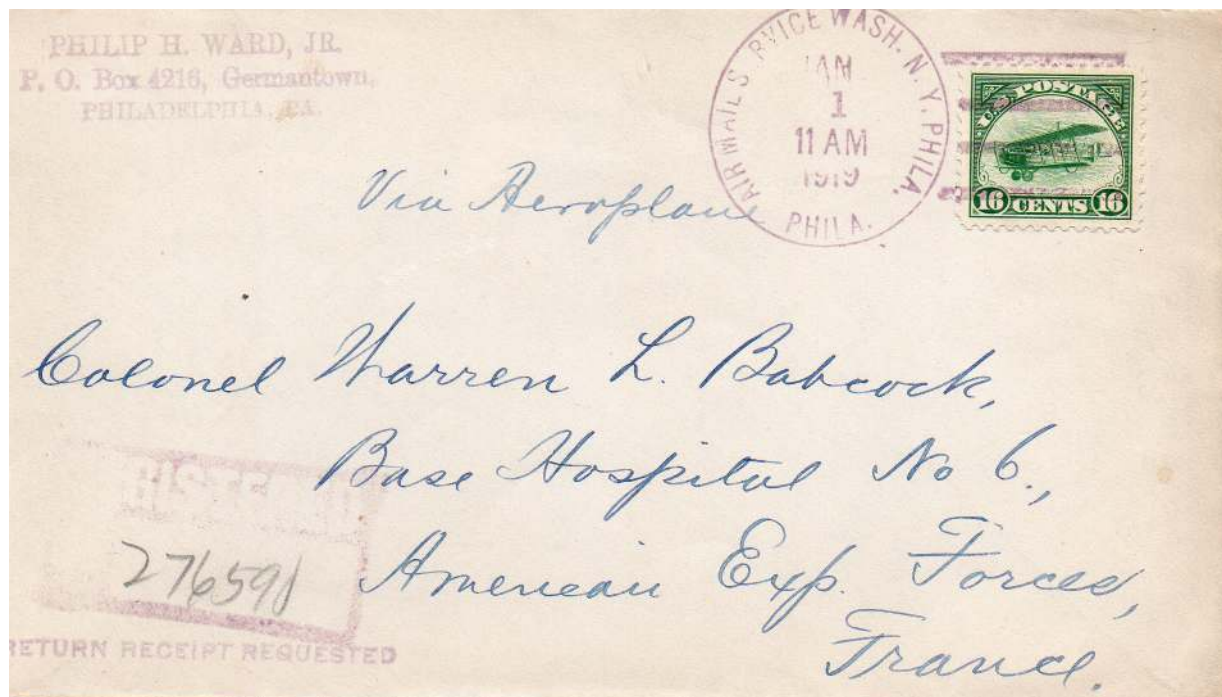 PHILIP H. WARD, JR.
P. O. Box 4216, Germantown,
PHILADELPHIA, PA.
AIR MAIL S RVICE WASH. N. Y. PHILA.
JAN
1
11 AM
1919
PHILA.
U.S. POSTAGE
16 CENTS 16
Via Aeroplane
Colonel Warren L. Babcock,
Base Hospital No 6.,
American Exp. Forces,
France.
REGISTERED
276591
RETURN RECEIPT REQUESTED